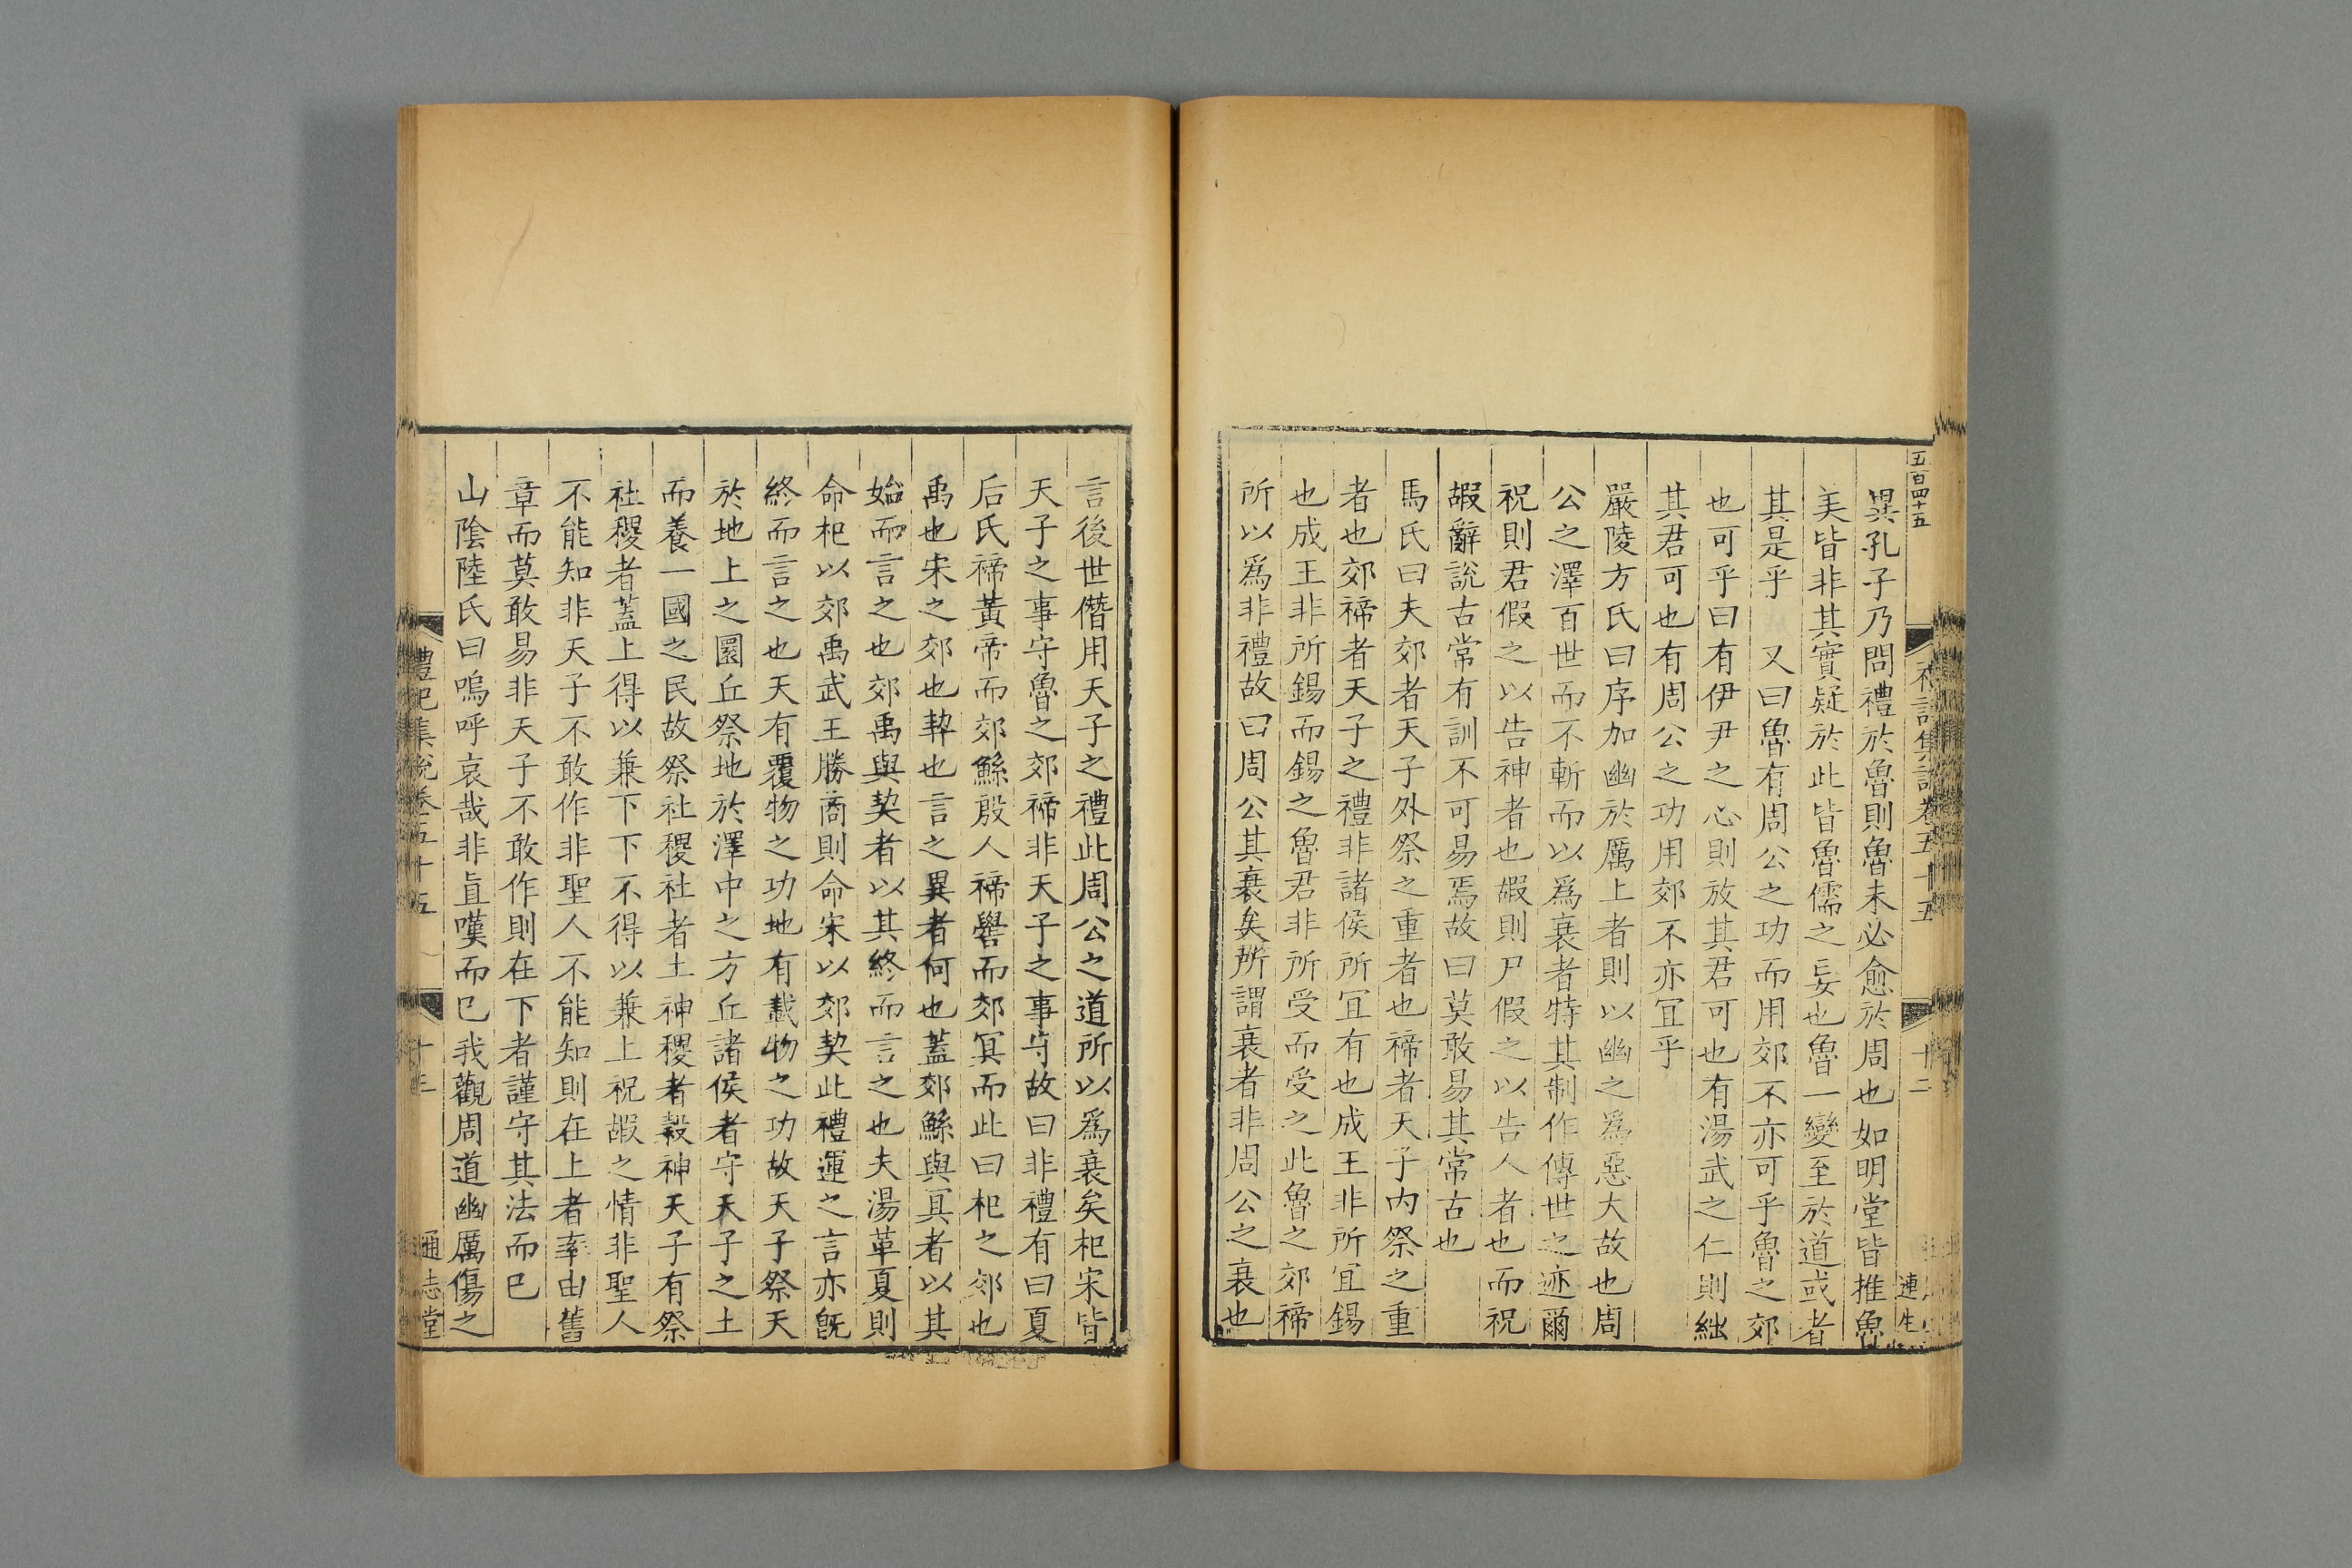 五百四十五
禮記集說卷五十五
十二
連生
異孔子乃問禮於魯則魯未必愈於周也如明堂皆推魯
美皆非其實疑於此皆魯儒之妄也魯一變至於道或者
其是乎 又曰魯有周公之功而用郊不亦可乎魯之郊
也可乎曰有伊尹之心則放其君可也有湯武之仁則絀
其君可也有周公之功用郊不亦冝乎
嚴陵方氏曰序加幽於厲上者則以幽之爲惡大故也周
公之澤百世而不斬而以爲衰者特其制作傳世之迹爾
祝則君假之以告神者也嘏則尸假之以告人者也而祝
嘏辭說古常有訓不可易焉故曰莫敢易其常古也
馬氏曰夫郊者天子外祭之重者也禘者天子内祭之重
者也郊禘者天子之禮非諸侯所冝有也成王非所冝錫
也成王非所錫而錫之魯君非所受而受之此魯之郊禘
所以爲非禮故曰周公其衰矣所謂衰者非周公之衰也
言後世僭用天子之禮此周公之道所以爲衰矣杞宋皆
天子之事守魯之郊禘非天子之事守故曰非禮有曰夏
后氏禘黃帝而郊鯀殷人禘嚳而郊冥而此曰杞之郊也
禹也宋之郊也契也言之異者何也蓋郊鯀與冥者以其
始而言之也郊禹與契者以其終而言之也夫湯革夏則
命杞以郊禹武王勝商則命宋以郊契此禮運之言亦旣
終而言之也天有覆物之功地有載物之功故天子祭天
於地上之圜丘祭地於澤中之方丘諸侯者守天子之土
而養一國之民故祭社稷社者土神稷者穀神天子有祭
社稷者蓋上得以兼下下不得以兼上祝嘏之情非聖人
不能知非天子不敢作非聖人不能知則在上者率由舊
章而莫敢易非天子不敢作則在下者謹守其法而已
山陰陸氏曰嗚呼哀哉非直嘆而已我觀周道幽厲傷之
禮記集說卷五十五
十三
通志堂